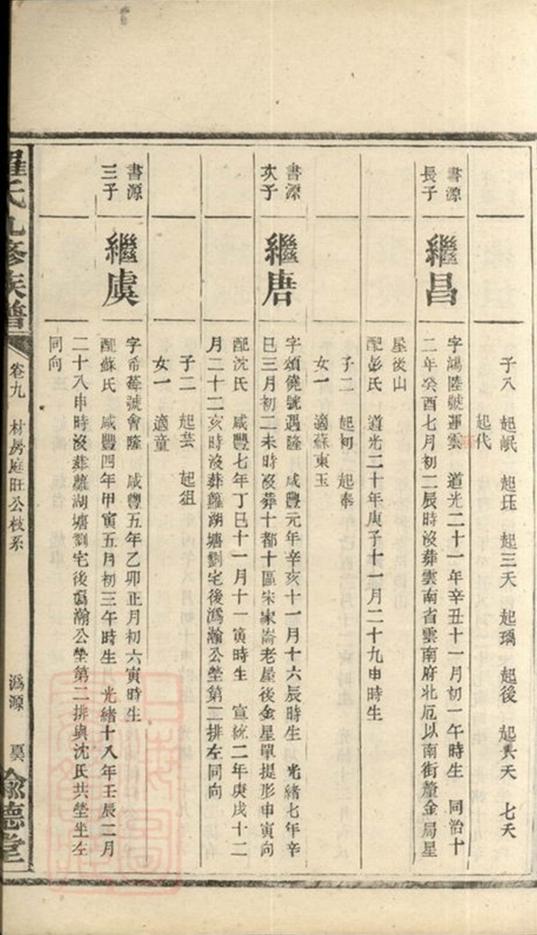 子八 起岷 起珏 起三夭 起瑀 起後 起六夭 七夭
起代
書源
長子
繼昌
字鴻陸號運雲 道光二十一年辛丑十一月初一午時生 同治十
二年癸酉七月初二辰時沒葬雲南省雲南府北厄以南街董金局星
屋後山
配彭氏 道光二十年庚子十一月二十九申時生
子二 起柯 起奉
女一 適蘇東玉
書源
次子
繼唐
字頌僥號遇隆 咸豐元年辛亥十一月十六辰時生 光緒七年辛
巳三月初二未時沒葬十都十區宋家崙老屋後金星單提形申寅向
配沈氏 咸豐七年丁巳十一月十一寅時生 宣統二年庚戌十二
月二十二亥時沒葬蘿湖塘劉宅後溈瀚公塋第二排左同向
子二 起芸 起組
女一 適童
書源
三子
繼虞
字希莓號會隆 咸豐五年乙卯正月初六寅時生
配蘇氏 咸豐四年甲寅五月初三午時生 光緒十八年壬辰二月
二十八申時沒葬蘿湖塘劉宅後溈瀚公塋第二排與沈氏共塋坐左
同向
羅氏九修族譜
卷九 材房庭旺公枝系
溈源
裏
敦德堂